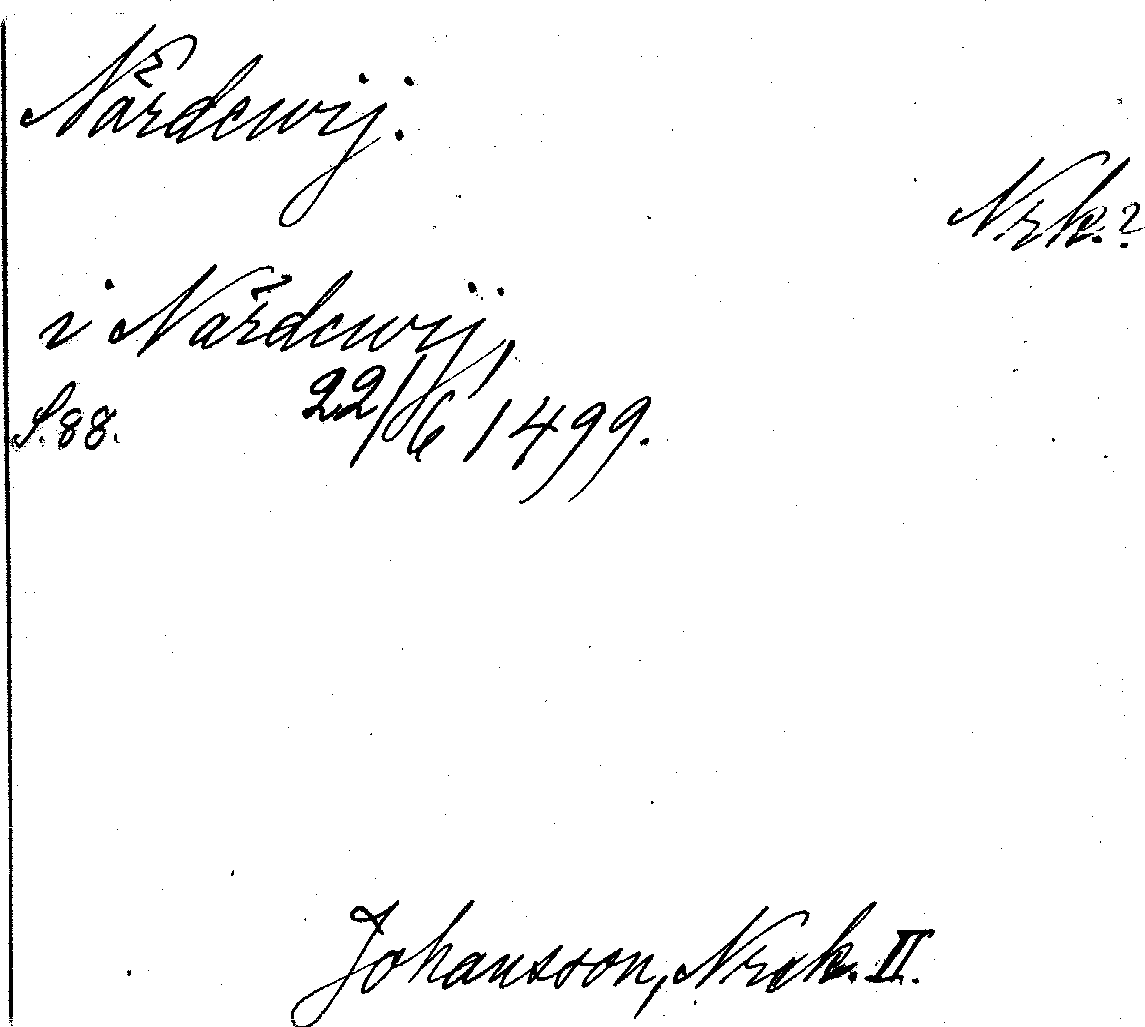 Nårdewij.
Nrk.?
i Nårdewij,
S. 88. 22/6 1499.
Johansson, Nrik. II.